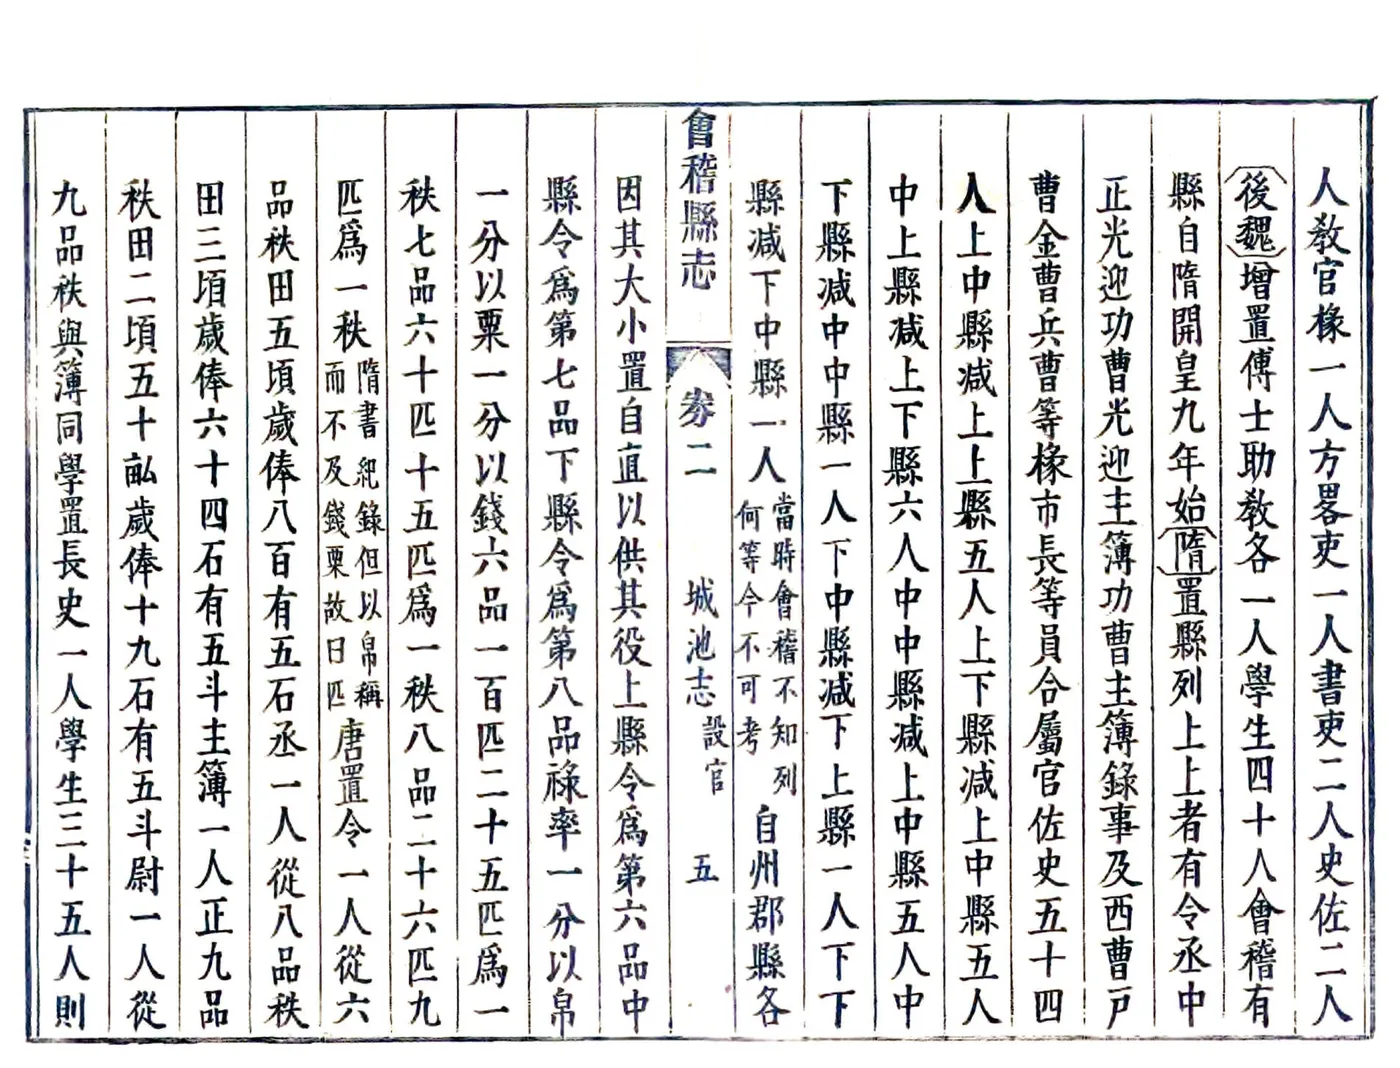 人教官椽一人方畧吏一人書吏二人史佐二人
後魏增置傅士助教各一人學生四十人會稽有
縣自隋開皇九年始隋置縣列上上者有令丞中
正光迎功曹光迎主簿功曹主簿錄事及西曹戸
曹金曹兵曹等椽市長等員合屬官佐史五十四
人上中縣減上上縣五人上下縣減上中縣五人
中上縣減上下縣六人中中縣減上中縣五人中
下縣減中中縣一人下中縣減下上縣一人下下
縣減下中縣一人當時會稽不知列何等今不可考自州郡縣各
會稽縣志 卷二 城池志 設官 五
因其大小置自直以供其役上縣令爲第六品中
縣令爲第七品下縣令爲第八品祿率一分以帛
一分以粟一分以錢六品一百匹二十五匹爲一
秩七品六十匹十五匹爲一秩八品二十六匹九
匹爲一秩隋書紀錄但以帛稱而不及錢粟故日匹唐置令一人從六
品秩田五頃歲俸八百有五石丞一人從八品秩
田三頃歲俸六十四石有五斗主簿一人正九品
秩田二頃五十畝歲俸十九石有五斗尉一人從
九品秩與簿同學置長史一人學生三十五人則